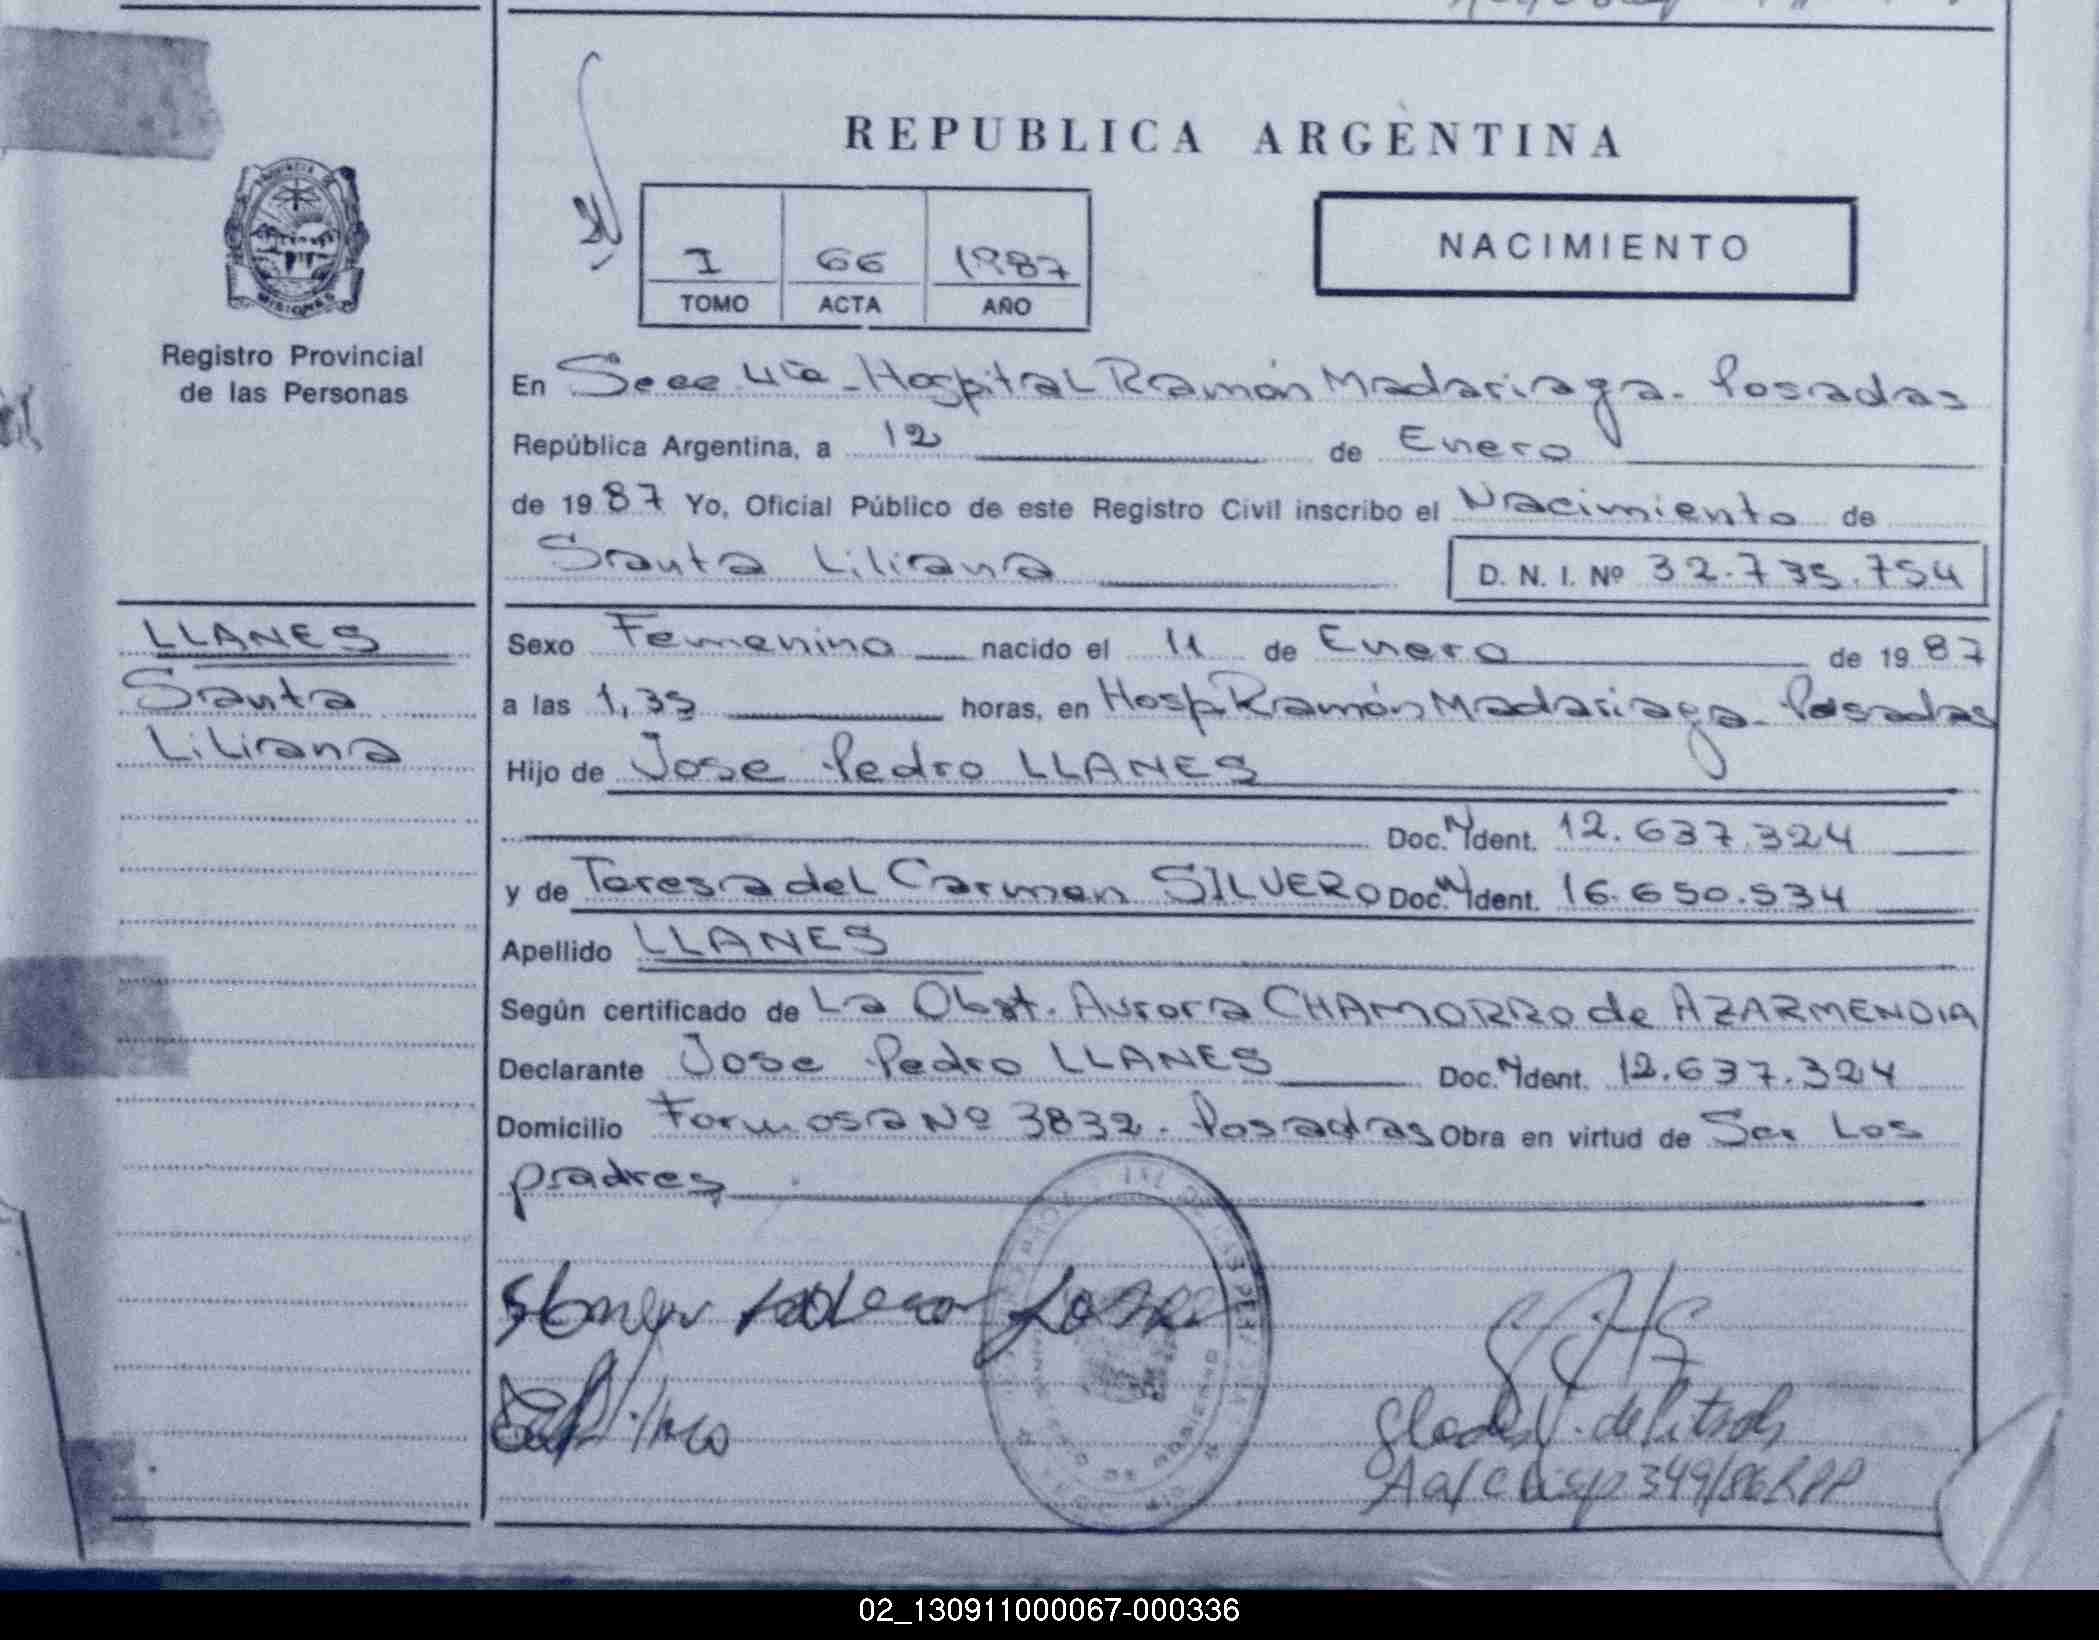 REPUBLICA ARGENTINA
NACIMIENTO
I 66 1987
TOMO ACTA AÑO
Registro Provincial
de las Personas
En Secc 4ta - Hospital Ramón Madariaga - Posadas
República Argentina, a 12 de Enero
de 1987 Yo, Oficial Público de este Registro Civil inscribo el Nacimiento de
Santa Liliana D. N. I. Nº 32.735.754
LLANES
Santa
Liliana
Sexo Femenino nacido el 11 de Enero de 1987
a las 1,35 horas, en Hosp Ramón Madariaga - Posadas
Hijo de Jose Pedro LLANES
Doc. Ident. 12.637.324
y de Teresa del Carmen SILVERO Doc. Ident. 16.650.534
Apellido LLANES
Según certificado de La Obst. Aurora CHAMORRO de AZARMENDIA
Declarante Jose Pedro LLANES Doc. Ident. 12.637.324
Domicilio Formosa Nº 3832 - Posadas Obra en virtud de Ser Los
padres
349/86 RPP
02_130911000067-000336